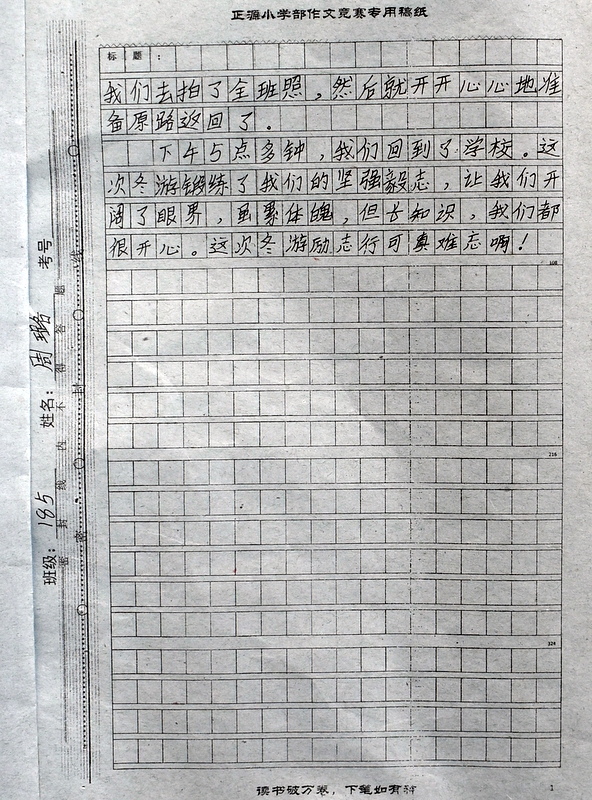 正源小学部作文竞赛专用稿纸
标题：
我们去拍了全班照，然后就开开心心地准
备原路返回了。
下午5点多钟，我们回到了学校。这
次冬游锻练了我们的坚强毅志，让我们开
阔了眼界，虽累体魄，但长知识，我们都
很开心。这次冬游励志行可真难忘啊！
108
216
324
考号
姓名：周璐
班级：185
密封线内不得答题
密封线
读书破万卷，下笔如有神
1